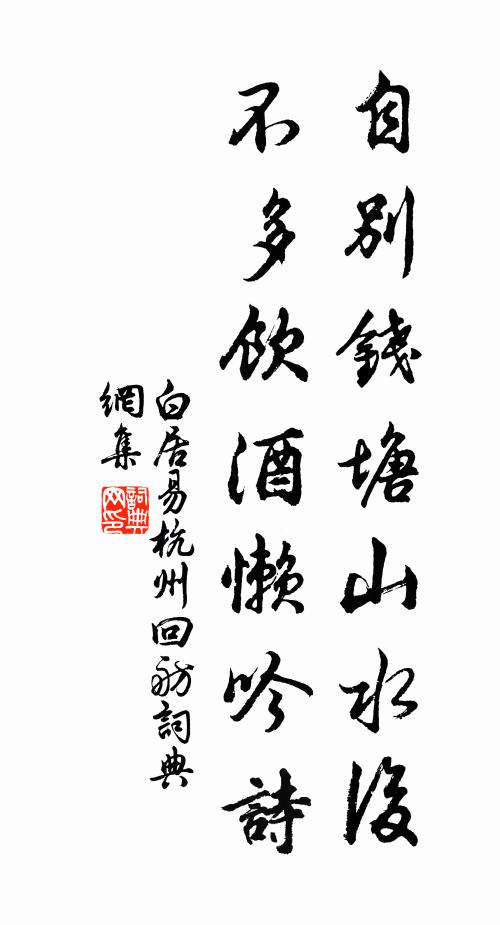 自別錢塘山水後
不多飲酒懶吟詩
白居易杭州回舫詞典
網集
詞典
网印